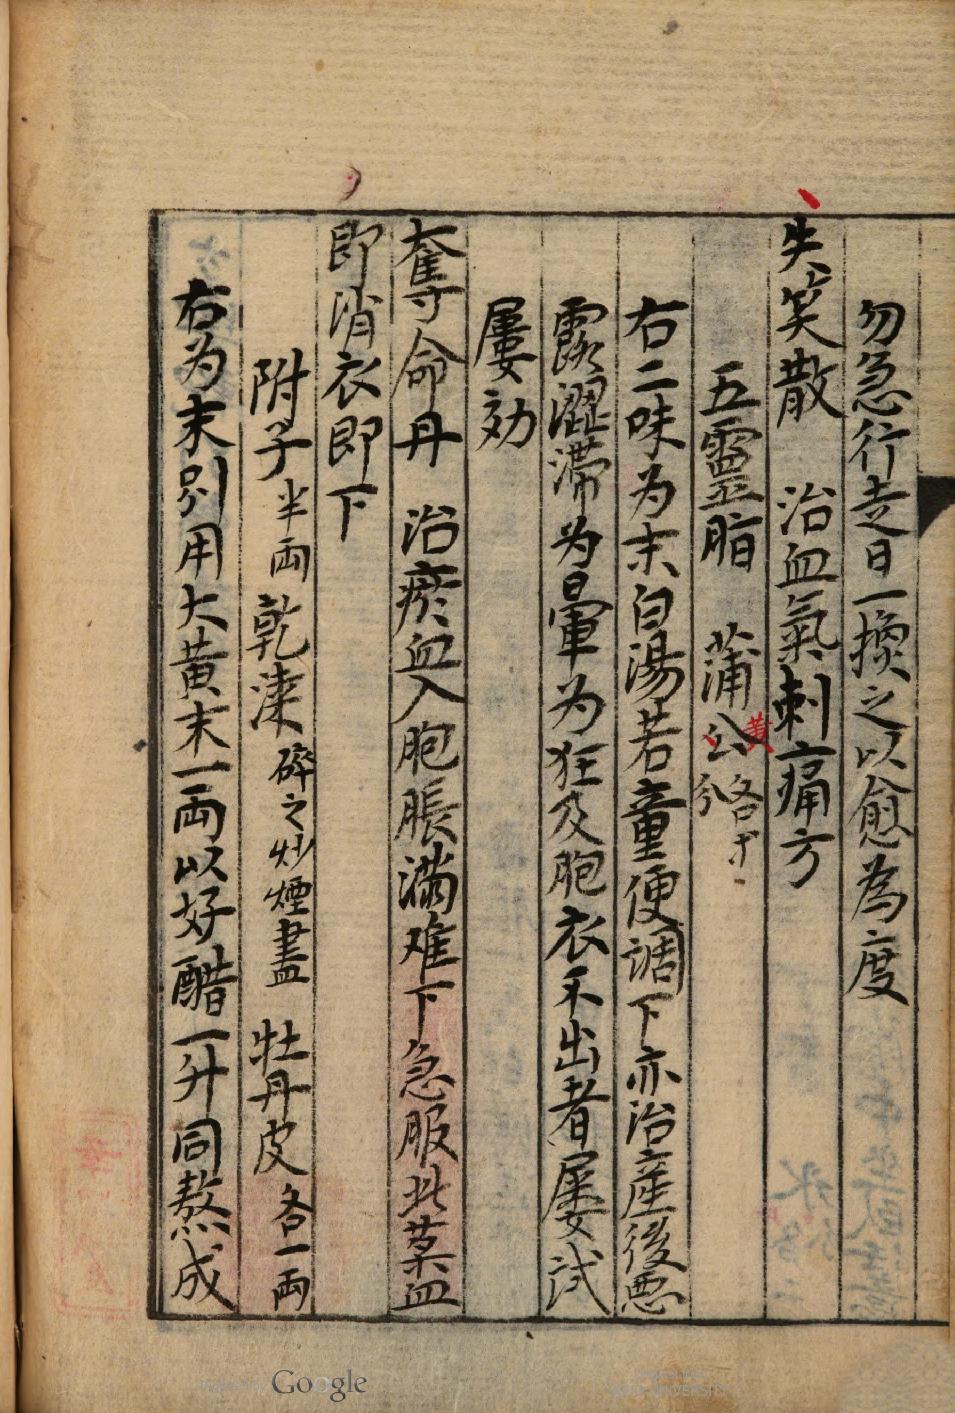 勿急行走日一換之以愈為度
失笑散　治血氣刺痛方
五靈脂　蒲公黃各等分
右二味为末白湯若童便調下亦治産後悪
露澀滞为暈为狂及胞衣不出者屢試
屢効
奪命丹　治瘀血入胞脹满难下急服此菓血
即消衣即下
附子半両　乾漆碎之炒煙盡　牡丹皮各一両
右为末别用大黄末一両以好醋一升同熬成
Google